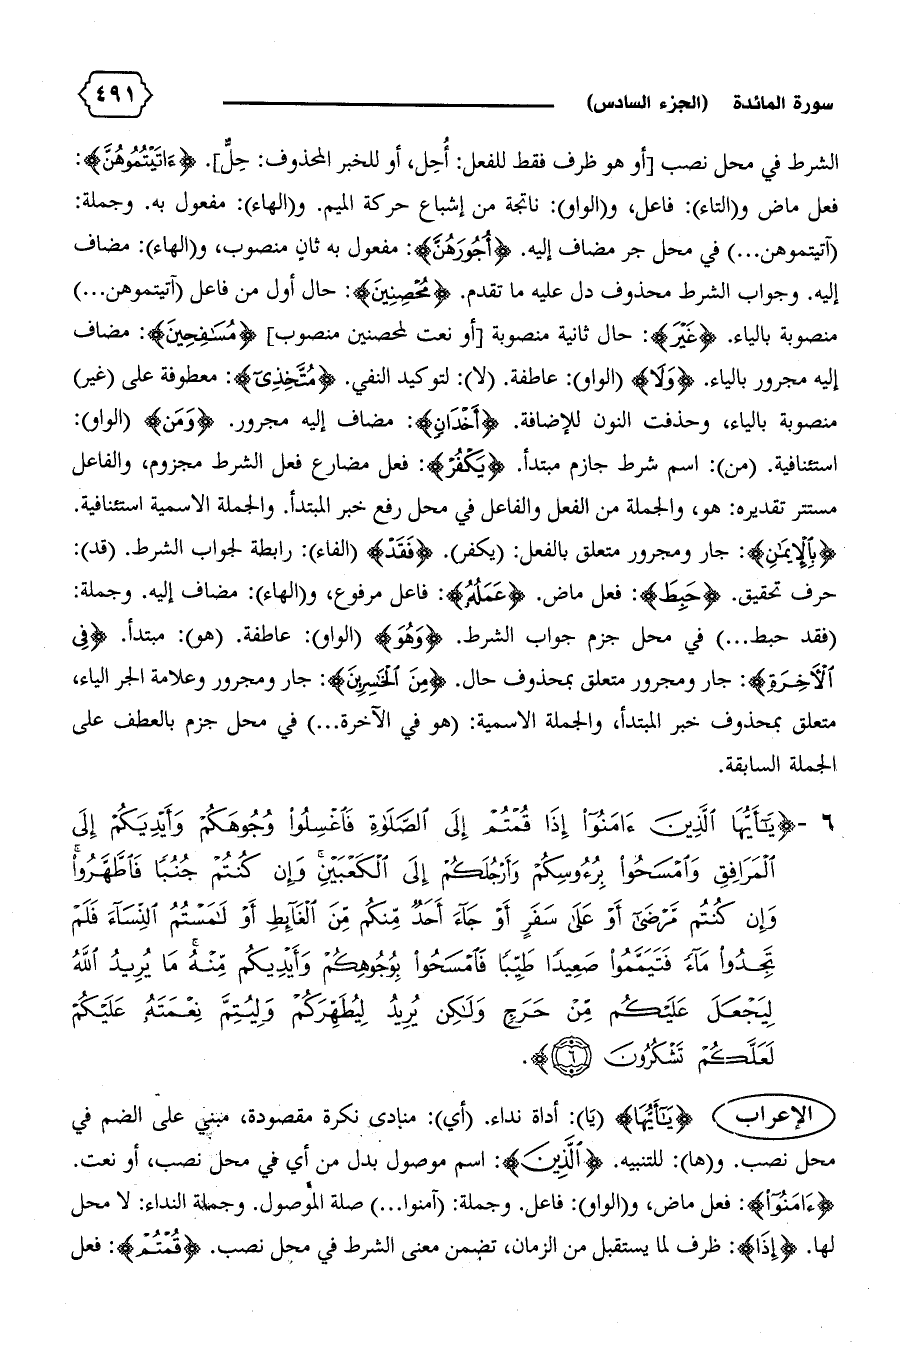 سورة المائدة (الجزء السادس) ٤٩١
الشرط في محل نصب [أو هو ظرف فقط للفعل: أُحل، أو للخبر المحذوف: حِلٌّ]. ﴿ءَاتَيْتُمُوهُنَّ﴾:
فعل ماض و(التاء): فاعل، و(الواو): ناتجة من إشباع حركة الميم. و(الهاء): مفعول به. وجملة:
(آتيتموهن...) في محل جر مضاف إليه. ﴿أُجُورَهُنَّ﴾: مفعول به ثانٍ منصوب، و(الهاء): مضاف
إليه. وجواب الشرط محذوف دل عليه ما تقدم. ﴿مُحْصِنِينَ﴾: حال أول من فاعل (آتيتموهن...)
منصوبة بالياء. ﴿غَيْرَ﴾: حال ثانية منصوبة [أو نعت لمحصنين منصوب] ﴿مُسَٰفِحِينَ﴾: مضاف
إليه مجرور بالياء. ﴿وَلَا﴾ (الواو): عاطفة. (لا): لتوكيد النفي. ﴿مُتَّخِذِىٓ﴾: معطوفة على (غير)
منصوبة بالياء، وحذفت النون للإضافة. ﴿أَخْدَانٍ﴾: مضاف إليه مجرور. ﴿وَمَن﴾ (الواو):
استئنافية. (من): اسم شرط جازم مبتدأ. ﴿يَكْفُرْ﴾: فعل مضارع فعل الشرط مجزوم، والفاعل
مستتر تقديره: هو، والجملة من الفعل والفاعل في محل رفع خبر المبتدأ. والجملة الاسمية استئنافية.
﴿بِٱلْإِيمَٰنِ﴾: جار ومجرور متعلق بالفعل: (يكفر). ﴿فَقَدْ﴾ (الفاء): رابطة لجواب الشرط. (قد):
حرف تحقيق. ﴿حَبِطَ﴾: فعل ماض. ﴿عَمَلُهُۥ﴾: فاعل مرفوع، و(الهاء): مضاف إليه. وجملة:
(فقد حبط...) في محل جزم جواب الشرط. ﴿وَهُوَ﴾ (الواو): عاطفة. (هو): مبتدأ. ﴿فِى
ٱلْأَخِرَةِ﴾: جار ومجرور متعلق بمحذوف حال. ﴿مِنَ ٱلْخَٰسِرِينَ﴾: جار ومجرور وعلامة الجر الياء،
متعلق بمحذوف خبر المبتدأ، والجملة الاسمية: (هو في الآخرة...) في محل جزم بالعطف على
الجملة السابقة.
٦ -﴿يَٰٓأَيُّهَا ٱلَّذِينَ ءَامَنُوٓا۟ إِذَا قُمْتُمْ إِلَى ٱلصَّلَوٰةِ فَٱغْسِلُوا۟ وُجُوهَكُمْ وَأَيْدِيَكُمْ إِلَى
ٱلْمَرَافِقِ وَٱمْسَحُوا۟ بِرُءُوسِكُمْ وَأَرْجُلَكُمْ إِلَى ٱلْكَعْبَيْنِ ۚ وَإِن كُنتُمْ جُنُبًا فَٱطَّهَّرُوا۟ ۚ
وَإِن كُنتُم مَّرْضَىٰٓ أَوْ عَلَىٰ سَفَرٍ أَوْ جَآءَ أَحَدٌ مِّنكُم مِّنَ ٱلْغَآئِطِ أَوْ لَٰمَسْتُمُ ٱلنِّسَآءَ فَلَمْ
تَجِدُوا۟ مَآءً فَتَيَمَّمُوا۟ صَعِيدًا طَيِّبًا فَٱمْسَحُوا۟ بِوُجُوهِكُمْ وَأَيْدِيكُم مِّنْهُ ۚ مَا يُرِيدُ ٱللَّهُ
لِيَجْعَلَ عَلَيْكُم مِّنْ حَرَجٍ وَلَٰكِن يُرِيدُ لِيُطَهِّرَكُمْ وَلِيُتِمَّ نِعْمَتَهُۥ عَلَيْكُمْ
لَعَلَّكُمْ تَشْكُرُونَ ٦﴾.
الإعراب ﴿يَٰٓأَيُّهَا﴾ (يَا): أداة نداء. (أي): منادى نكرة مقصودة، مبني على الضم في
محل نصب. و(ها): للتنبيه. ﴿ٱلَّذِينَ﴾: اسم موصول بدل من أي في محل نصب، أو نعت.
﴿ءَامَنُوٓا۟﴾: فعل ماض، و(الواو): فاعل. وجملة: (آمنوا...) صلة الموصول. وجملة النداء: لا محل
لها. ﴿إِذَا﴾: ظرف لما يستقبل من الزمان، تضمن معنى الشرط في محل نصب. ﴿قُمْتُمْ﴾: فعل